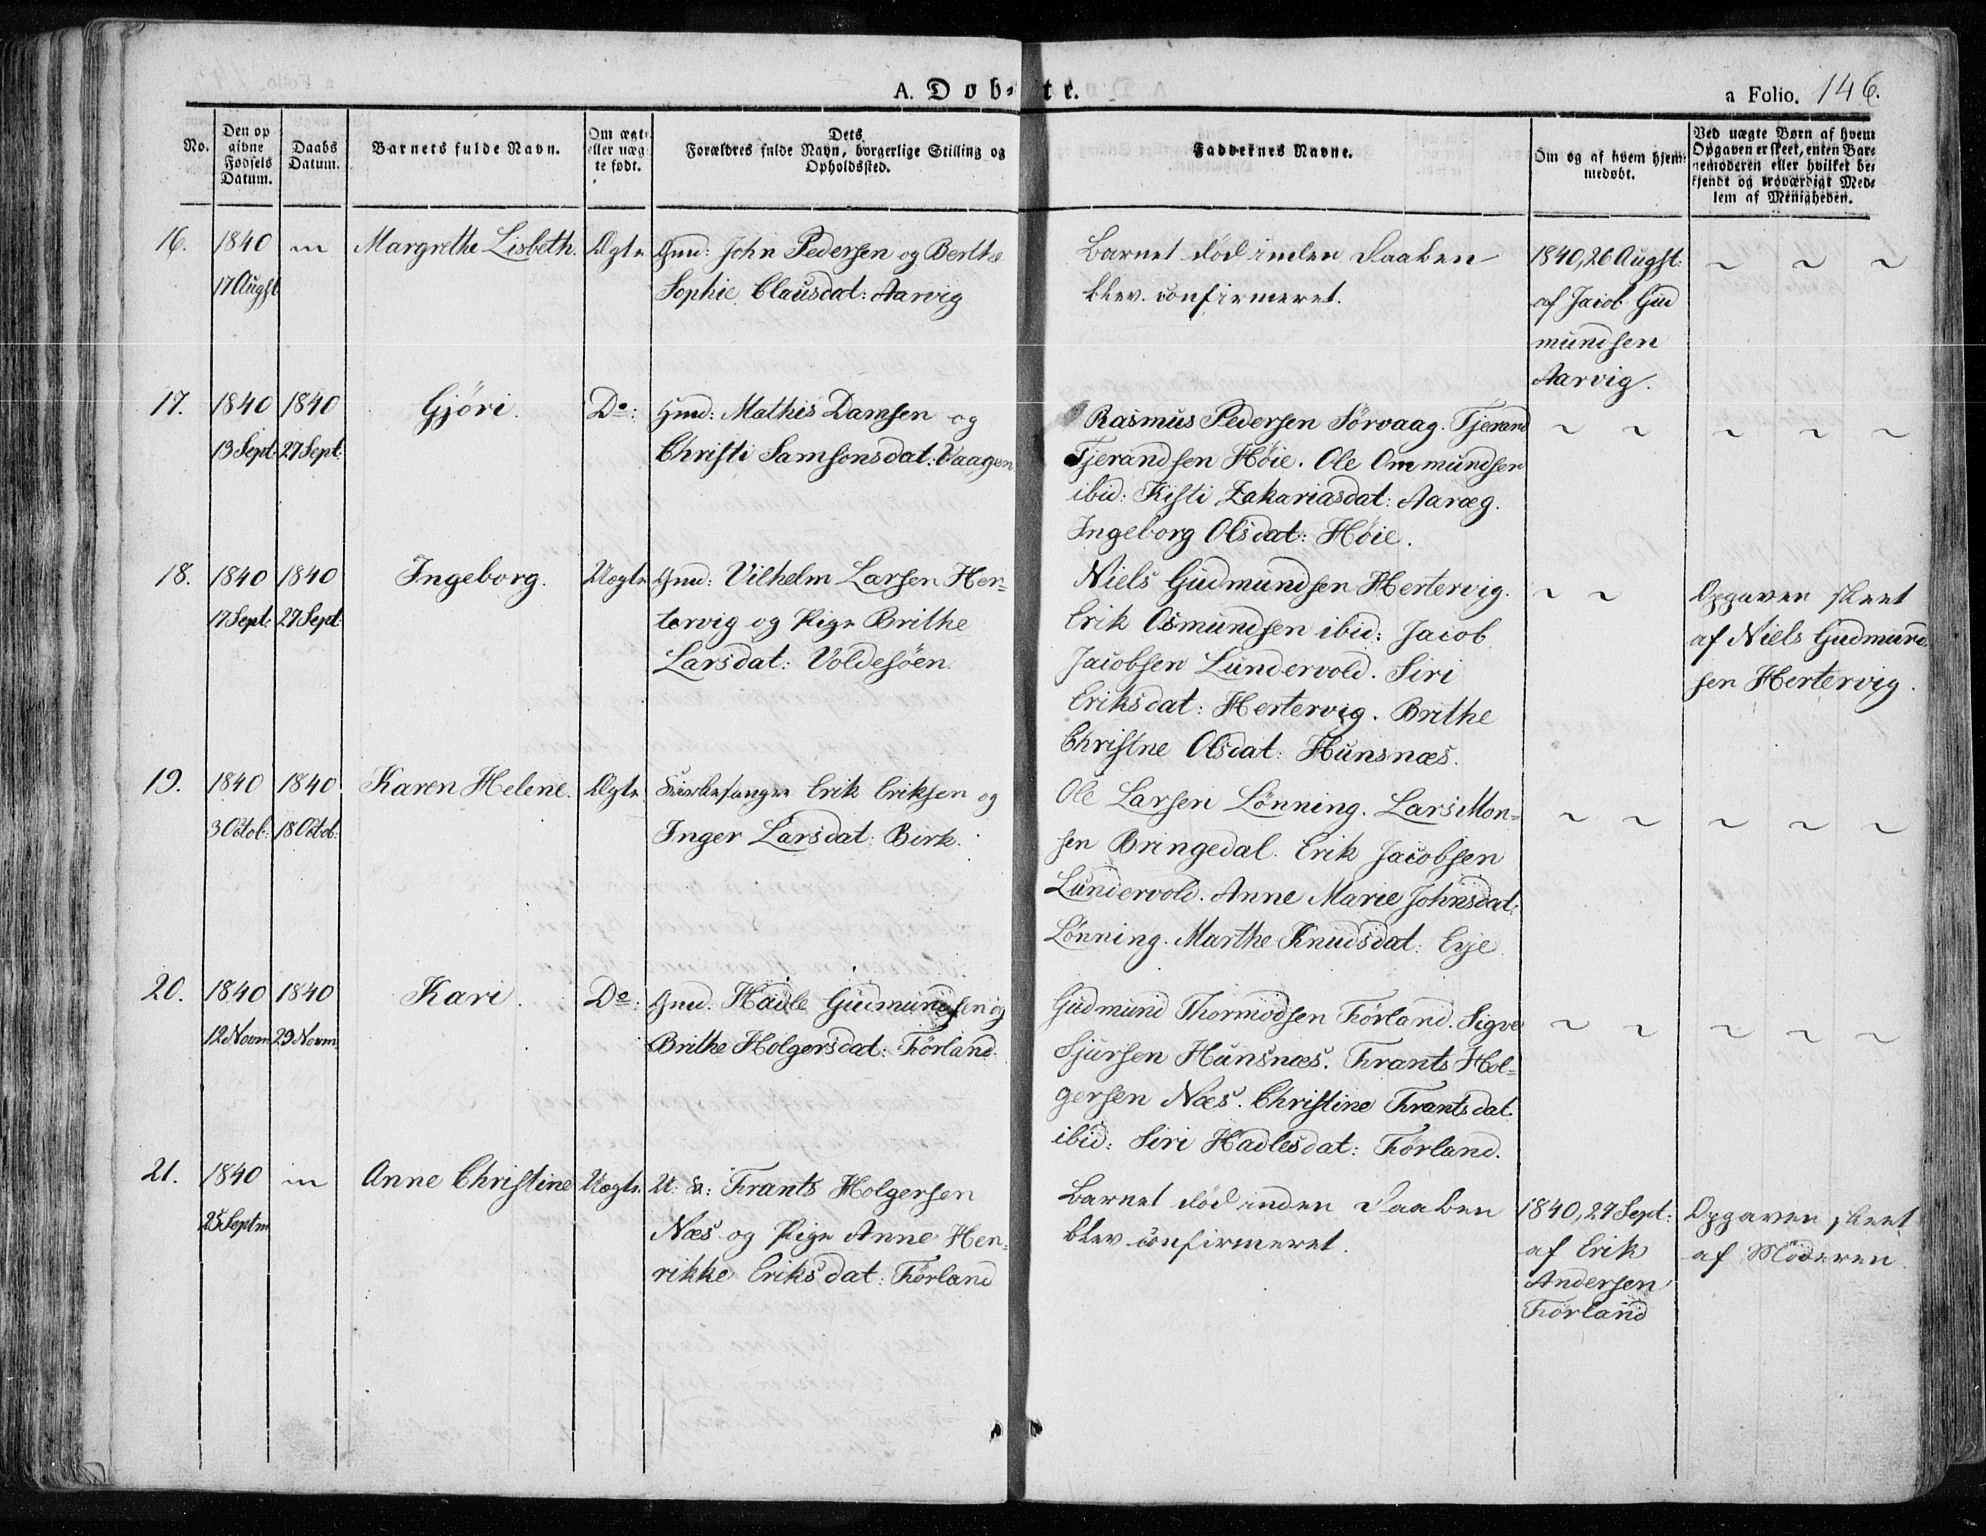 A. Døb-te.
a Folio. 146.
No.
Den op
givne
Fødsels
Datum.
Daabs
Datum.
Barnets fulde Navn.
Om ægte
eller uæg-
te født.
Dets
Forældres fulde Navn, borgerlige Stilling og
Opholdssted.
Faddernes Navne.
Om og af hvem hjem-
medøbt.
Ved uægte Børn af hvem
Opgaven er skeet, enten Bar-
nemoderen eller hvilket be-
kjendt og troværdigt Med-
lem af Menigheden.
16.
1840
17 Augst
"
Margrethe Lisbeth.
Ægte
Gmd: John Pedersen og Berthe
Sophie Clausdat: Aarvig
Barnet død inden Daaben
blev confirmeret.
1840, 26 Augst:
af Jacob Gud
mundsen
Aarvig.
~ ~ ~
17.
1840
13 Sept:
1840
27 Sept:
Gjöri.
Do:
Gmd: Mathis Damsen og
Christi Samsonsdat: Vaagen
Rasmus Pedersen Sørvaag. Tjerand
Tjerandsen Høie. Ole Ommundsen
ibid: Kisti Zakariasdat: Aaræg.
Ingeborg Olsdat: Høie.
~ ~ ~ ~ ~
18.
1840
17 Sept:
1840
27 Sept
Ingeborg.
Uægte
Gmd: Vilhelm Larsen Her-
tervig og Pige Brithe
Larsdat: Voldesøen.
Niels Gudmundsen Hertervig.
Erik Osmundsen ibid: Jacob
Jacobsen Lundervold. Siri
Eriksdat: Hertervig. Brithe
Christne Olsdat: Hunsnæs.
~ ~
Opgaven skeet
af Niels Gudmund
sen Hertervig.
19.
1840
3 Octob:
1840
18 Octob:
Karen Helene.
Ægte
Kirkesanger Erik Eriksen og
Inger Larsdat: Birk.
Ole Larsen Lønning. Lars Mon-
sen Bringedal. Erik Jacobsen
Lundervold. Anne Marie Johnsdat:
Lønning. Marthe Knudsdat: Eye
~ ~ ~ ~ ~
20.
1840
12 Novm
1840
29 Novm
Kari.
Do:
Gmd. Hadle Gudmundsen og
Brithe Holgersdat: Førland.
Gudmund Thormodsen Førland. Sigve
Sjursen Hunsnæs. Frants Hol-
gersen Næs. Christine Frantsdat
ibid: Siri Hadlesdat: Førland.
~ ~ ~ ~ ~
21.
1840
25 Septm
"
Anne Christine
Uægte.
U: K: Frants Holgersen
Næs og Pige Anne Hen-
rikke Eriksdat: Førland
Barnet død inden Daaben
blev confirmeret.
1840, 27 Sept:
af Erik
Andersen
Førland
Opgaven skeet
af Moderen.